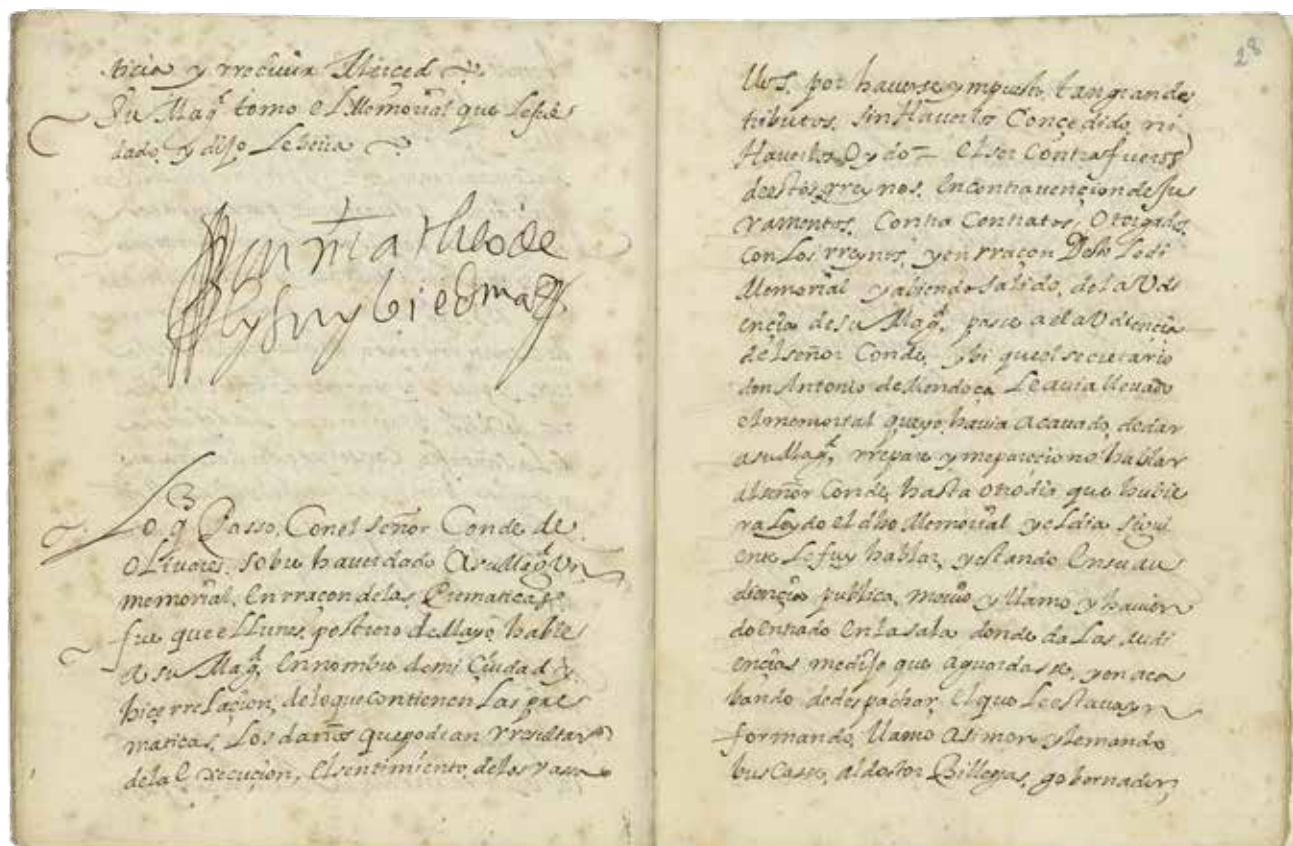 ticia y rrecivira Merced
Su Magd. tomo el Memorial que le fue
dado, y dijo le beria
Don Matheo de
Lison y biedma
Lo q̃ Passo, Con el señor Conde de
Olivares, sobre haver dado A su Magd. Un
memorial, en rraçon de las Prematicas,
fue que el lunes postrero de Mayo, hable
A su Magd. en nombre de mi Çiudad y
hiçe rrelaçion, de lo que contienen Las pre
maticas, Los daños que podian rresultar
de la Execuçion, el sentimiento, de los vasa
28
llos, por haverse ympuesto, tan grandes
tributos, sin Haverlos Conçedido, ni
Haverlos Oydo = el ser Contra fueros
de estos rreynos, en contravençion de ju
ramentos, Contra Contratos, Otorgados
con Los rreynos, y en rraçon Desto Le di
Memorial y abiendo salido, de la Udi
ençia de su Magd. pase a la Udiençia
del señor Conde, y bi que el secretario
don Antonio de Mendoça Le avia llevado
el memorial que yo, havia acavado, de dar
a su Magd. rrepare y me pareçio no hablar
al señor Conde, hasta otro dia que hubie
ra Leydo el dho Memorial y el dia sigui
ente Le fuy hablar, y estando en su au
diençia publica, me vio y llamo y havien
do entrado en la sala donde da Las Audi
ençias me dijo que aguardase, y en aca
bando de despachar, el que Le estava yn
formando, llamo A simon y le mando
buscasse, al dotor Billegas, gobernador